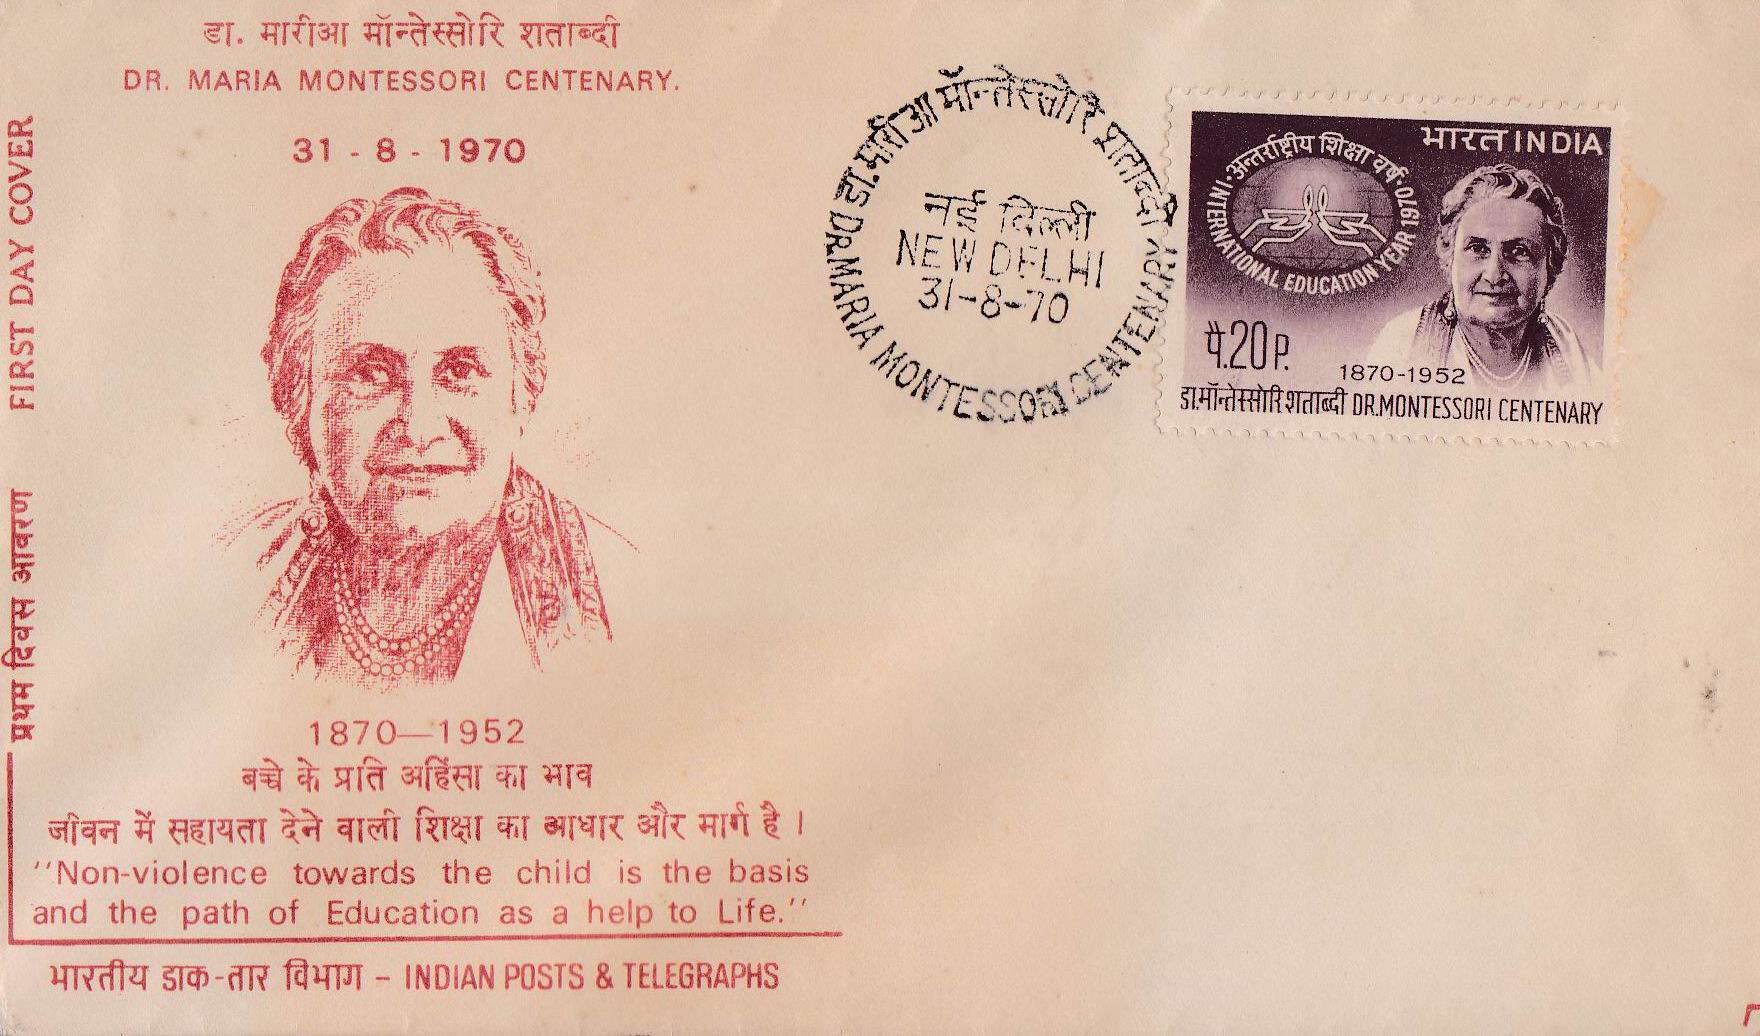 डा. मारीआ मॉन्तेस्सोरि शताब्दी
DR. MARIA MONTESSORI CENTENARY.
31 - 8 - 1970
प्रथम दिवस आवरण FIRST DAY COVER
1870—1952
बच्चे के प्रति अहिंसा का भाव
जीवन में सहायता देने वाली शिक्षा का आधार और मार्ग है ।
"Non-violence towards the child is the basis
and the path of Education as a help to Life."
भारतीय डाक-तार विभाग – INDIAN POSTS & TELEGRAPHS
डा. मारीआ मॉन्तेस्सोरि शताब्दी
नई दिल्ली
NEW DELHI
31-8-70
DR. MARIA MONTESSORI CENTENARY
भारत INDIA
अन्तर्राष्ट्रीय शिक्षा वर्ष
INTERNATIONAL EDUCATION YEAR 1970
पै.20 P.
1870-1952
डा.मॉन्तेस्सोरि शताब्दी DR.MONTESSORI CENTENARY